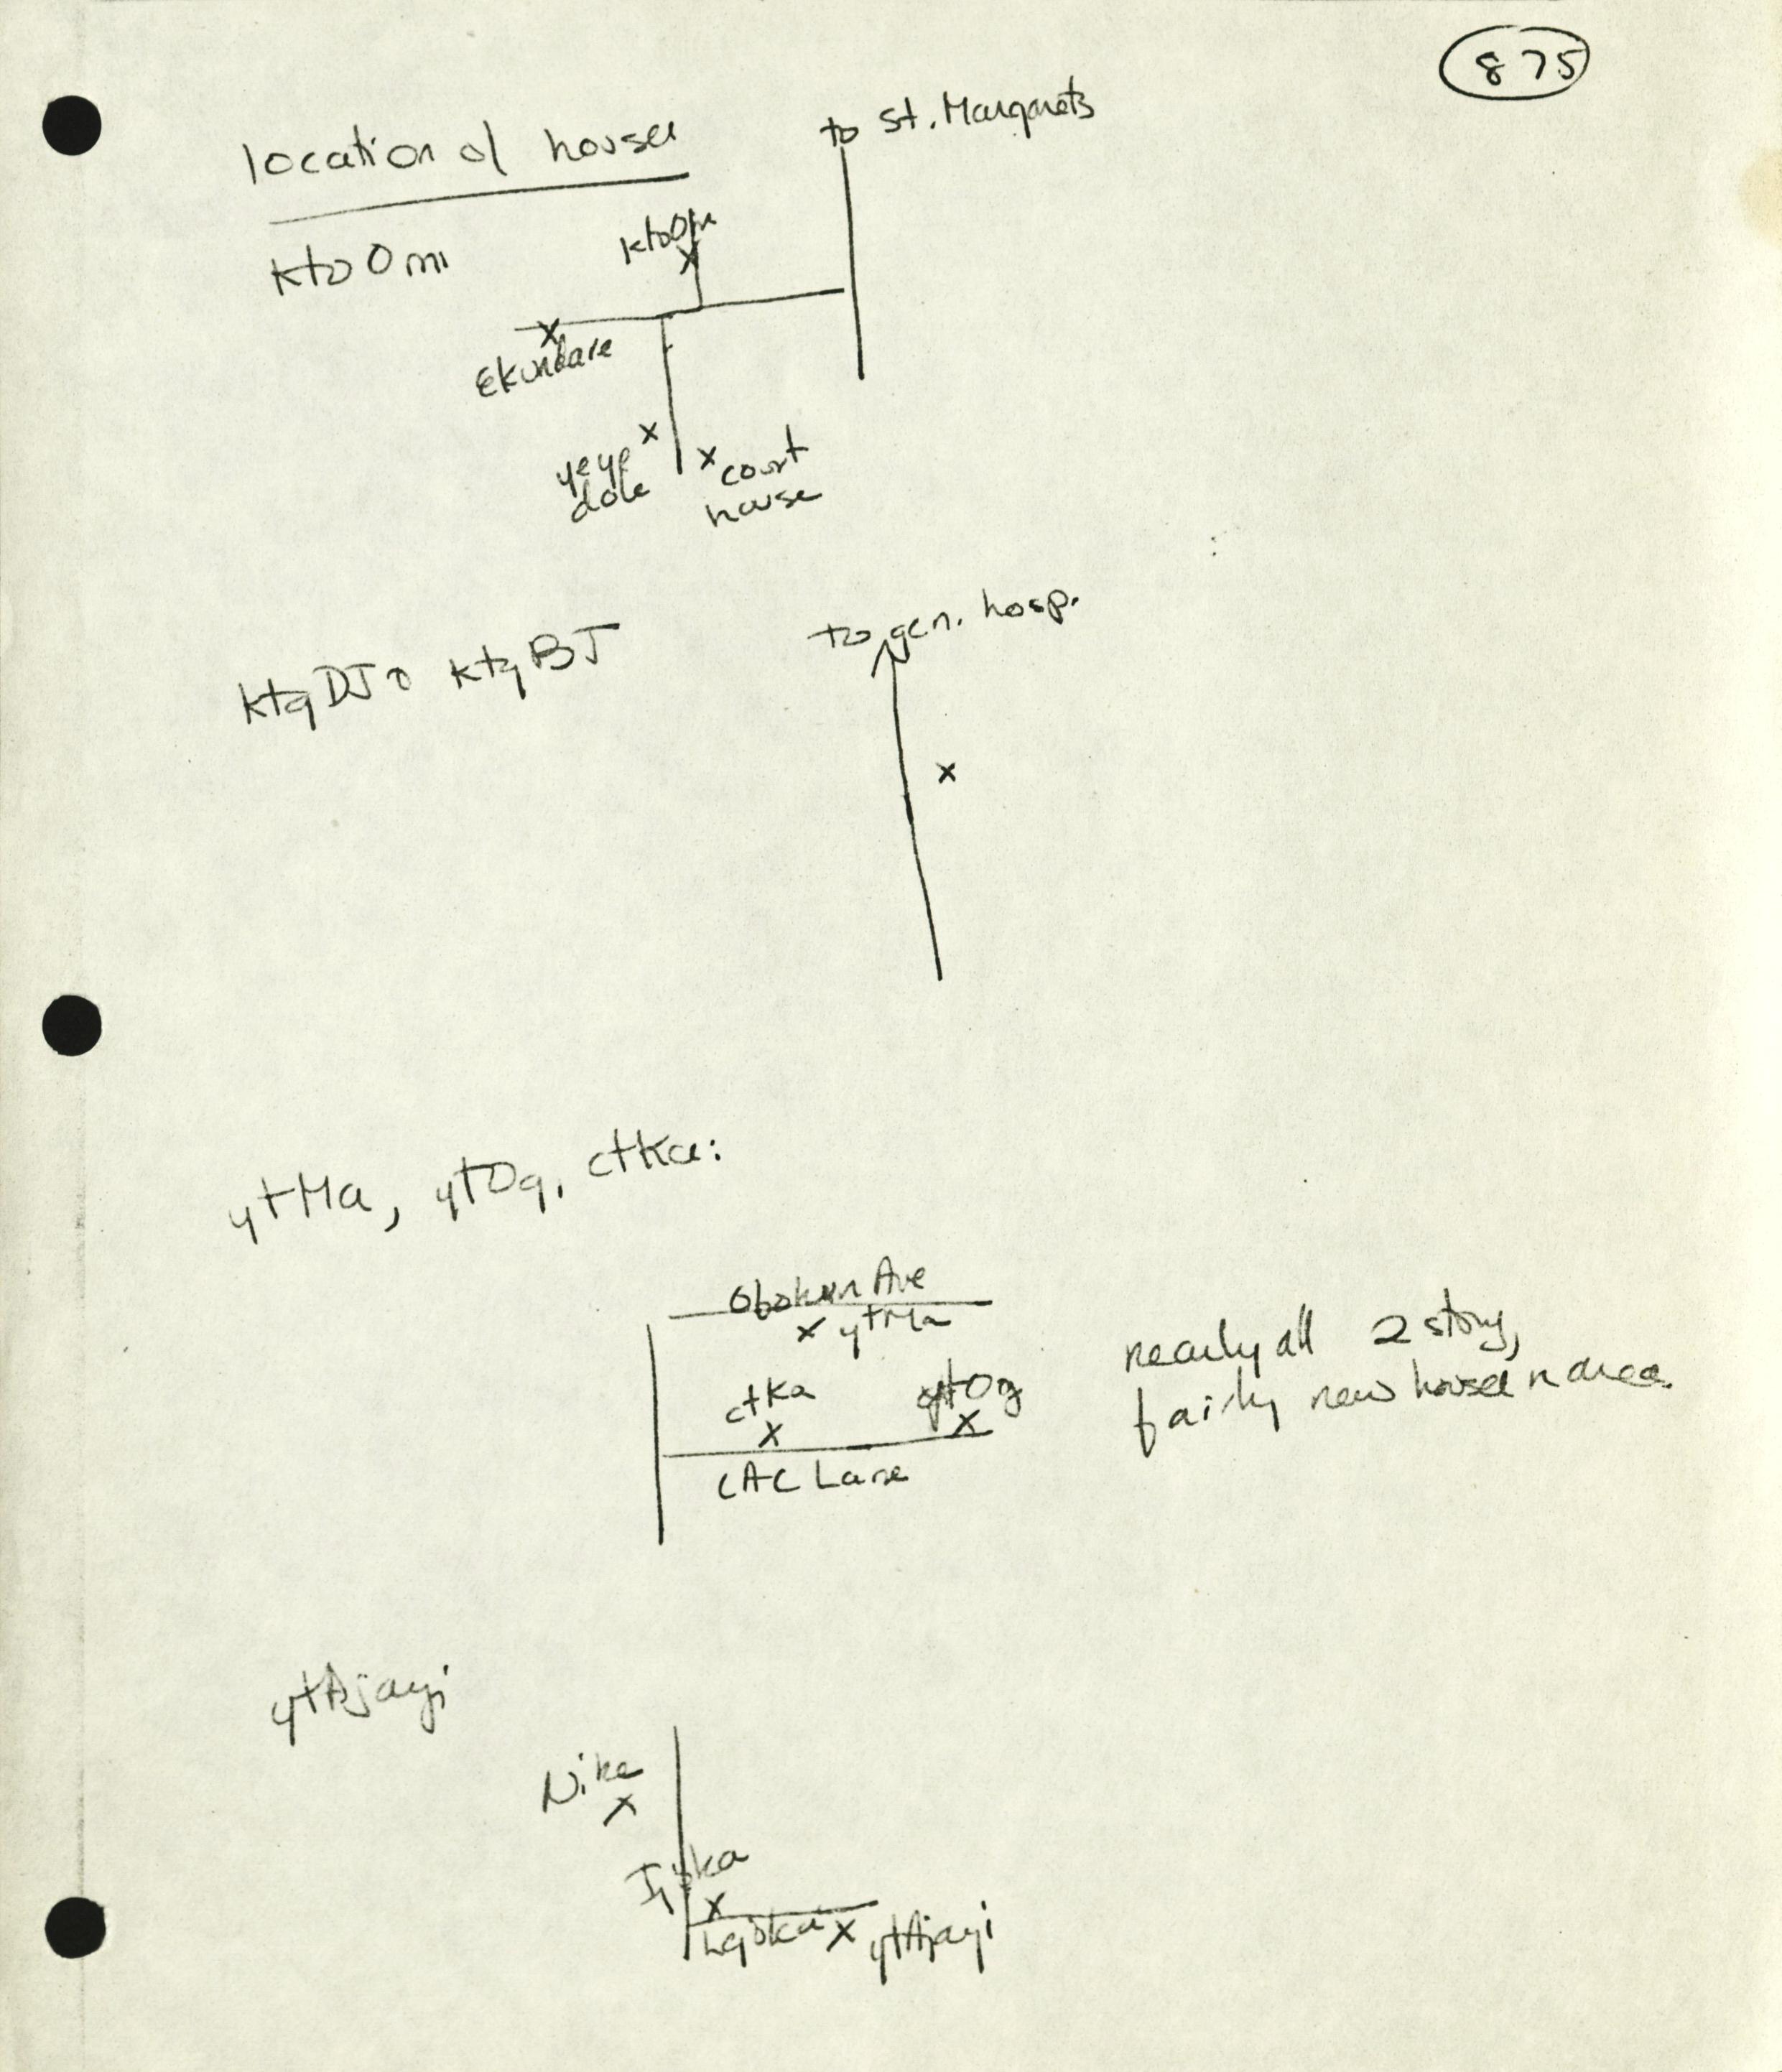 875
location of houses
to St. Margarets
kto Omi
ktoOm
X
X
Ekundare
X
yeye
dole
X court
house
to gen. hosp.
ktqDJ ktqBJ
X
ytMa, ytOg, ctka:
Obokun Ave
X ytMa
nearly all 2 story,
fairly new houses n area.
ctka
X
ytOg
X
CAC Lane
ytAjayi
Nike
X
X
X ytAjayi